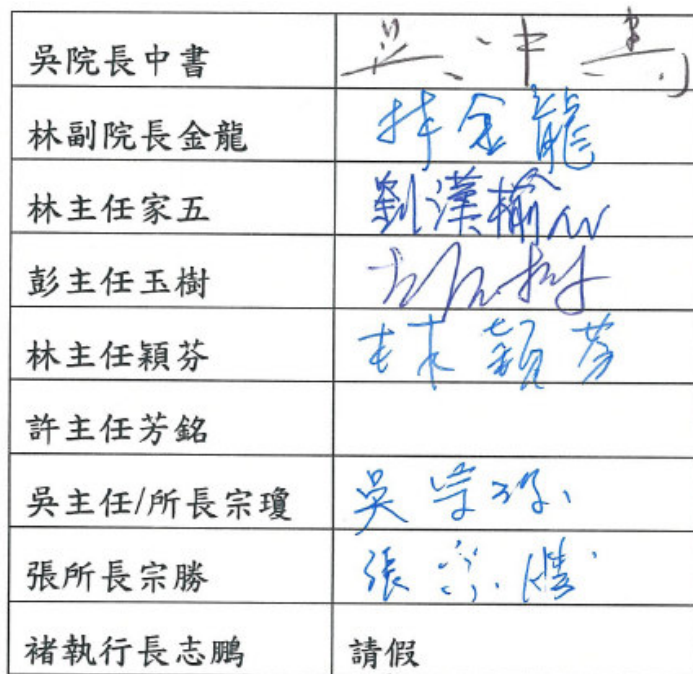 吳院長中書 吳中書
林副院長金龍 林金龍
林主任家五 劉漢榆
彭主任玉樹
林主任穎芬 林穎芬
許主任芳銘
吳主任/所長宗瓊 吳宗瓊
張所長宗勝 張宗勝
褚執行長志鵬 請假